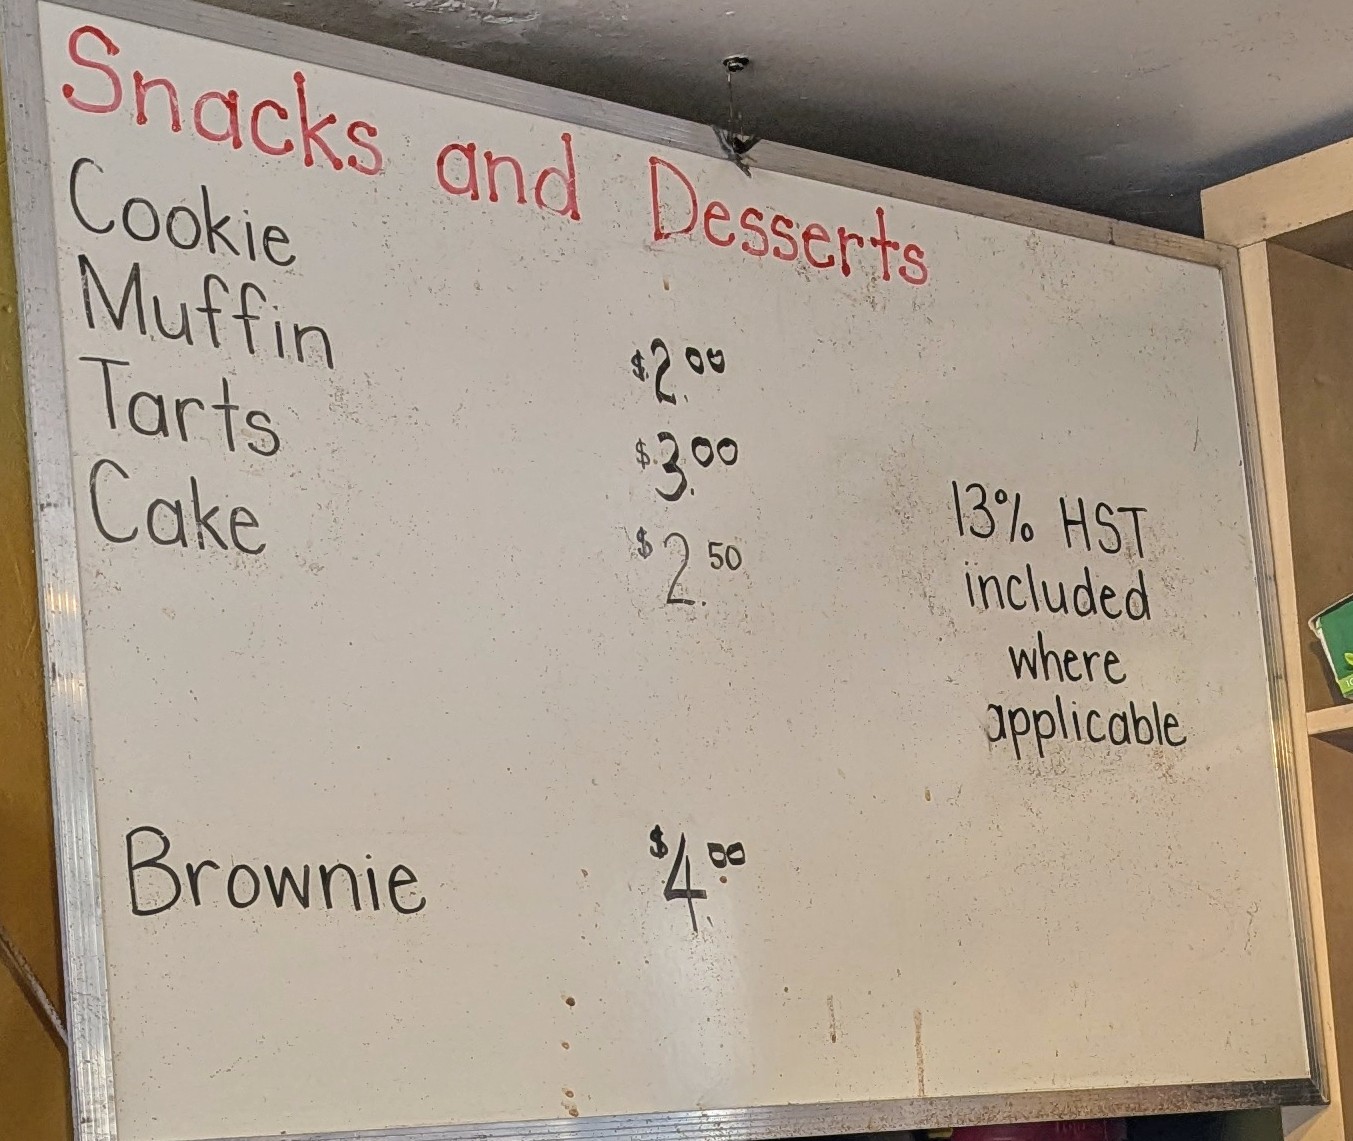 Snacks and Desserts
Cookie
Muffin $2.00
Tarts $3.00
Cake $2.50
13% HST
included
where
applicable
Brownie $4.00